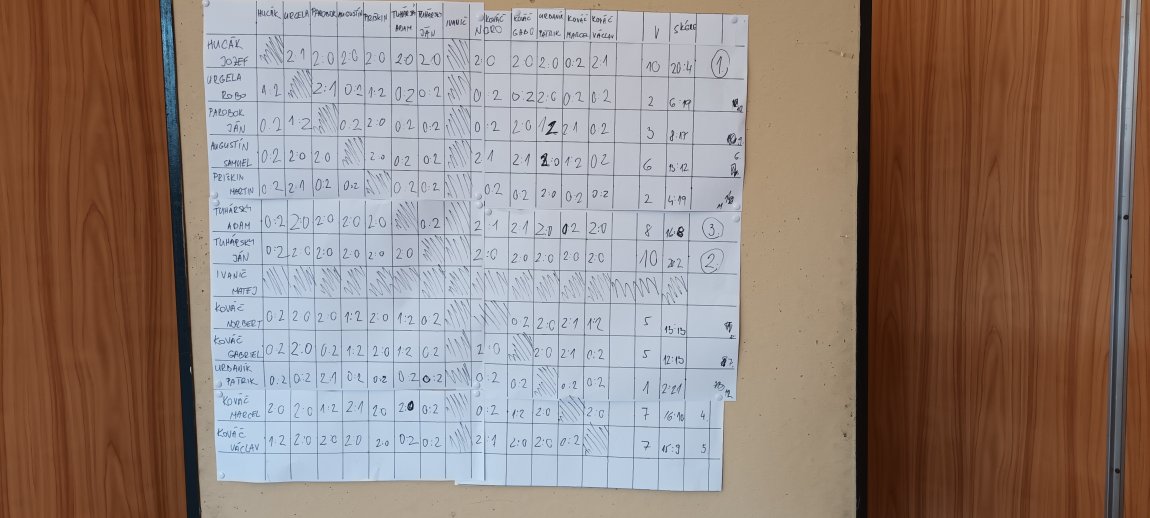 HUCÁK URGELA PAROBOK AUGUSTÍN PRÍŠKIN TUHÁRSKY ADAM TUHÁRSKY JÁN IVANIČ KOVÁČ NORO KOVÁČ GABO URBANÍK PATRIK KOVÁČ MARCEL KOVÁČ VÁCLAV V SKÓRE
HUCÁK JOZEF 2:1 2:0 2:0 2:0 2:0 2:0 2:0 2:0 2:0 0:2 2:1 10 20:4 1
URGELA ROBO 1:2 2:1 0:2 1:2 0:2 0:2 0:2 0:2 2:0 0:2 0:2 2 6:19
PAROBOK JÁN 0:2 1:2 0:2 2:0 0:2 0:2 0:2 2:0 1:2 2:1 0:2 3 8:17
AUGUSTÍN SAMUEL 0:2 2:0 2:0 2:0 0:2 0:2 2:1 2:1 2:0 1:2 0:2 6 13:12 6.
PRÍŠKIN MARTIN 0:2 2:1 0:2 0:2 0:2 0:2 0:2 0:2 2:0 0:2 0:2 2 4:19
TUHÁRSKY ADAM 0:2 2:0 2:0 2:0 2:0 0:2 2:1 2:1 2:0 0:2 2:0 8 16:8 3.
TUHÁRSKY JÁN 0:2 2:0 2:0 2:0 2:0 2:0 2:0 2:0 2:0 2:0 2:0 10 20:2 2
IVANIČ MATEJ
KOVÁČ NORBERT 0:2 2:0 2:0 1:2 2:0 1:2 0:2 0:2 2:0 2:1 1:2 5 13:13
KOVÁČ GABRIEL 0:2 2:0 0:2 1:2 2:0 1:2 0:2 2:0 2:0 2:1 0:2 5 12:13 7.
URBANÍK PATRIK 0:2 0:2 2:1 0:2 0:2 0:2 0:2 0:2 0:2 0:2 0:2 1 2:21 12
KOVÁČ MARCEL 2:0 2:0 1:2 2:1 2:0 2:0 0:2 0:2 1:2 2:0 2:0 7 16:10 4.
KOVÁČ VÁCLAV 1:2 2:0 2:0 2:0 2:0 0:2 0:2 2:1 2:0 2:0 0:2 7 15:9 5